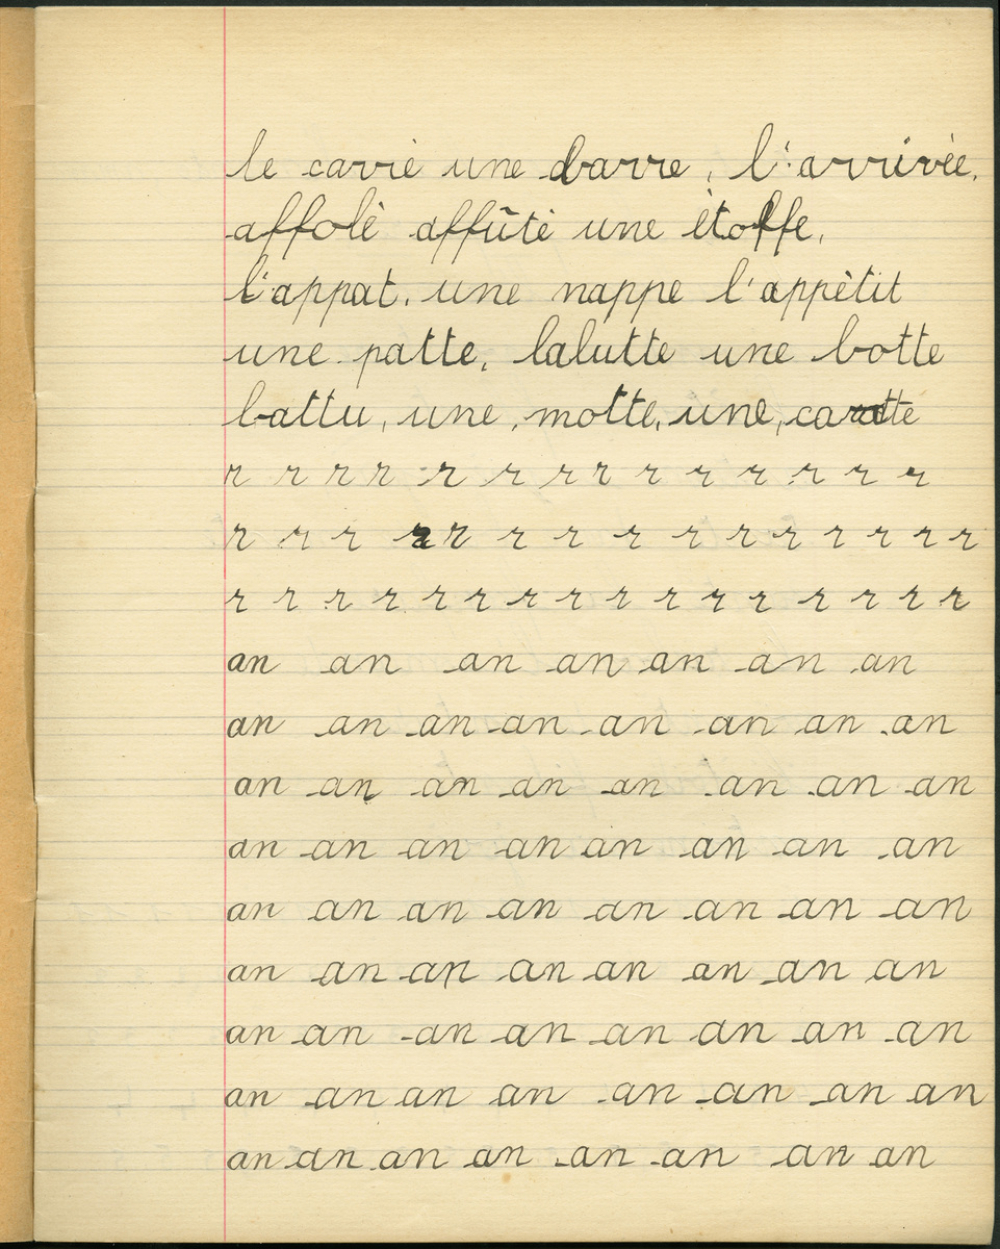 le carré une barre, l'arrivée,
affolé affûté une étoffe,
l'appat, une nappe l'appétit
une patte, lalutte une botte
battu, une, motte, une, carotte
r r r r r r r r r r r r r r
r r r r r r r r r r r r r r
r r r r r r r r r r r r r r r r
an an an an an an an
an an an an an an an an
an an an an an an an an
an an an an an an an an
an an an an an an an an
an an an an an an an an
an an an an an an an an
an an an an an an an an
an an an an an an an an